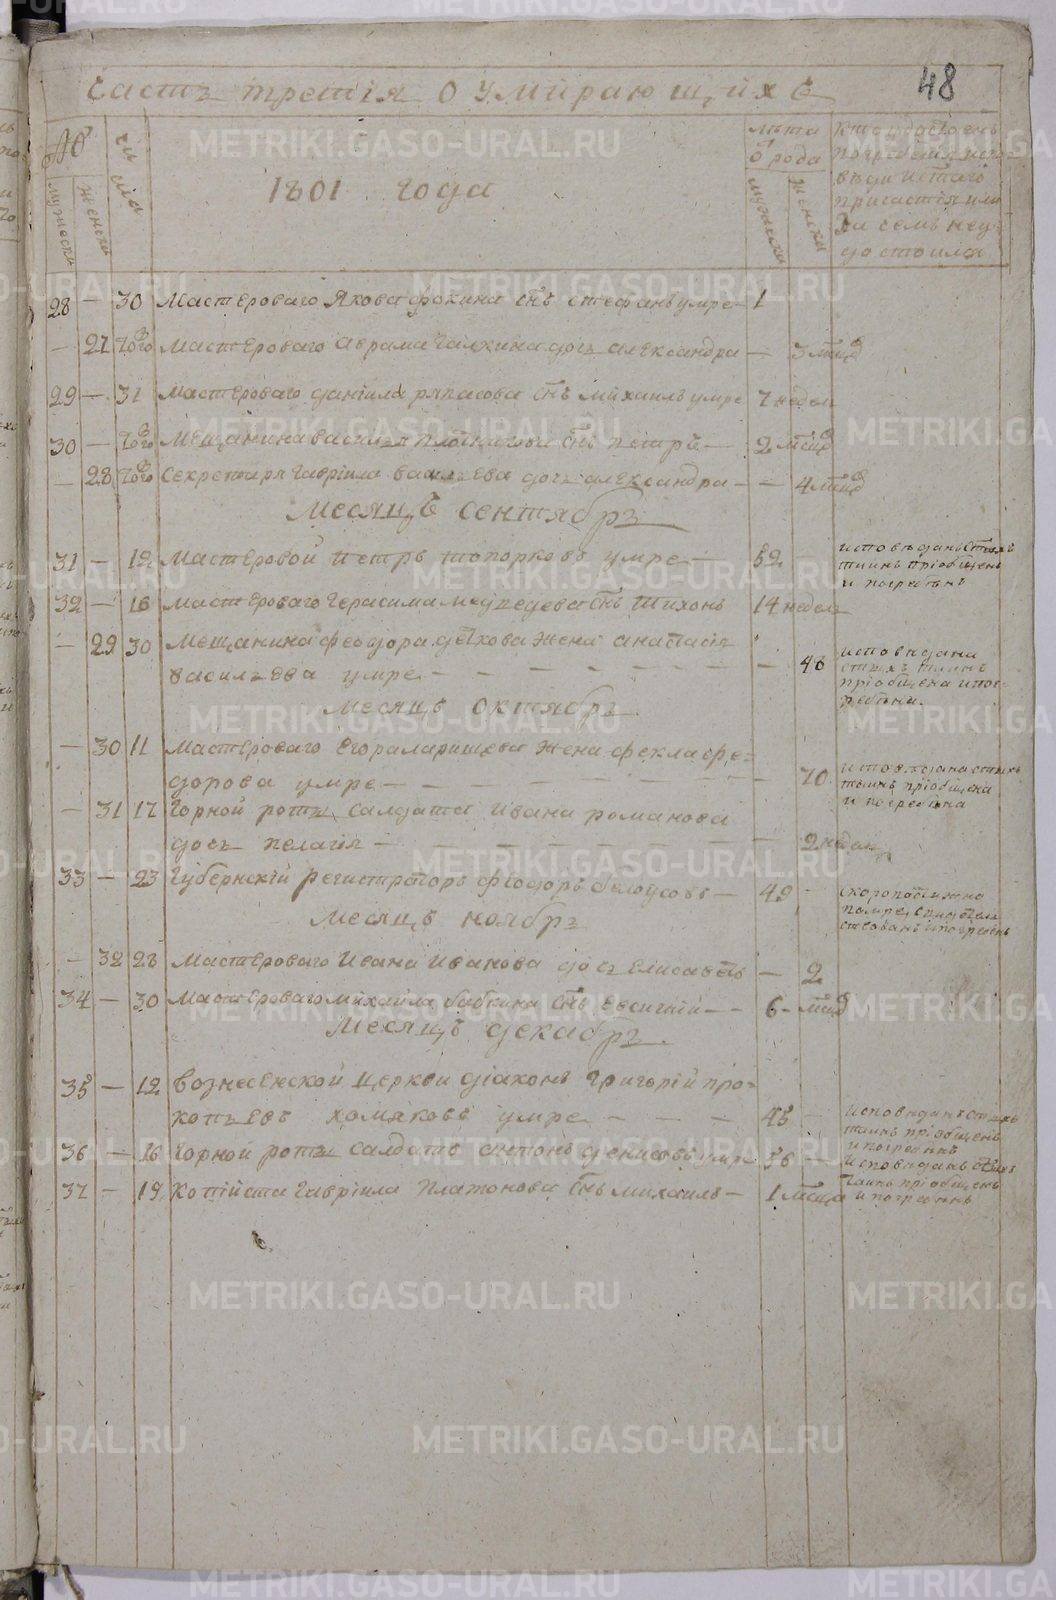 48
Часть третія О умирающихъ
№
числа
лѣта
ѿ рода
мужески
женски
1801 года
мужески
женски
кто удостоенъ
погребенія испо-
вѣди и стаго
причастія или
За семъ неу-
достоился
28 — 30 Мастероваго Якова Фокина снъ стефанъ умре — 1
— 27 того Мастероваго Аврама Галкина дочь александра — 3 мцовъ
29 — 31 Мастероваго данїила ряпасова снъ Михаилъ умре 7 недел
30 — того Мещанина василья плотникова снъ петръ — 2 мцовъ
— 28 того Секретаря Гаврїила васильева дочь александра — — 4 мцовъ
Месяцъ сентябрь
31 — 12 Мастеровой петръ топорковъ умре — 52 — исповѣданъ стыхъ
таинъ прїобщенъ
и погребенъ
32 — 16 мастероваго Герасима медведева снъ Тихонъ 14 недель
— 29 30 Мещанина феодора дѣхова жена анастасїя
васильева умре — — — — — — 48 исповедана
стыхъ таинъ
прїобщена и пог-
ребена.
Месяцъ октябрь
— 30 11 Мастероваго Егора ларищева жена фекла фе-
дорова умре — — — — — — — 70 исповедана стыхъ
таинъ прїобщена
и погребена
— 31 17 Горной роты салдата ивана романова
дочь пелагїя — — — — — — — 2 недел
33 — 23 Губернскїй регистраторъ феодоръ белоусовъ — 49 — скоропостижно
помре свидетел
ствованъ и погребенъ
Месяцъ ноябрь
— 32 28 Мастероваго Ивана Иванова дочь елисаветъ — 2
34 — 30 Мастероваго Михаила бабкина снъ евсигнїй — — 6 — мцовъ
Месяцъ декабрь.
35 — 12 вознесенской церкви дїаконъ григорїй про-
копьевъ хомяковъ умре — — — 45 — исповеданъ стыхъ
таинъ прїобщенъ
и погребенъ
36 — 16 Горной роты салдатъ антонъ денисовъ умре 56 — исповеданъ стыхъ
таинъ прїобщенъ
и погребенъ
37 — 19 копїиста Гаврїила платонова снъ михаилъ — 1 мсца